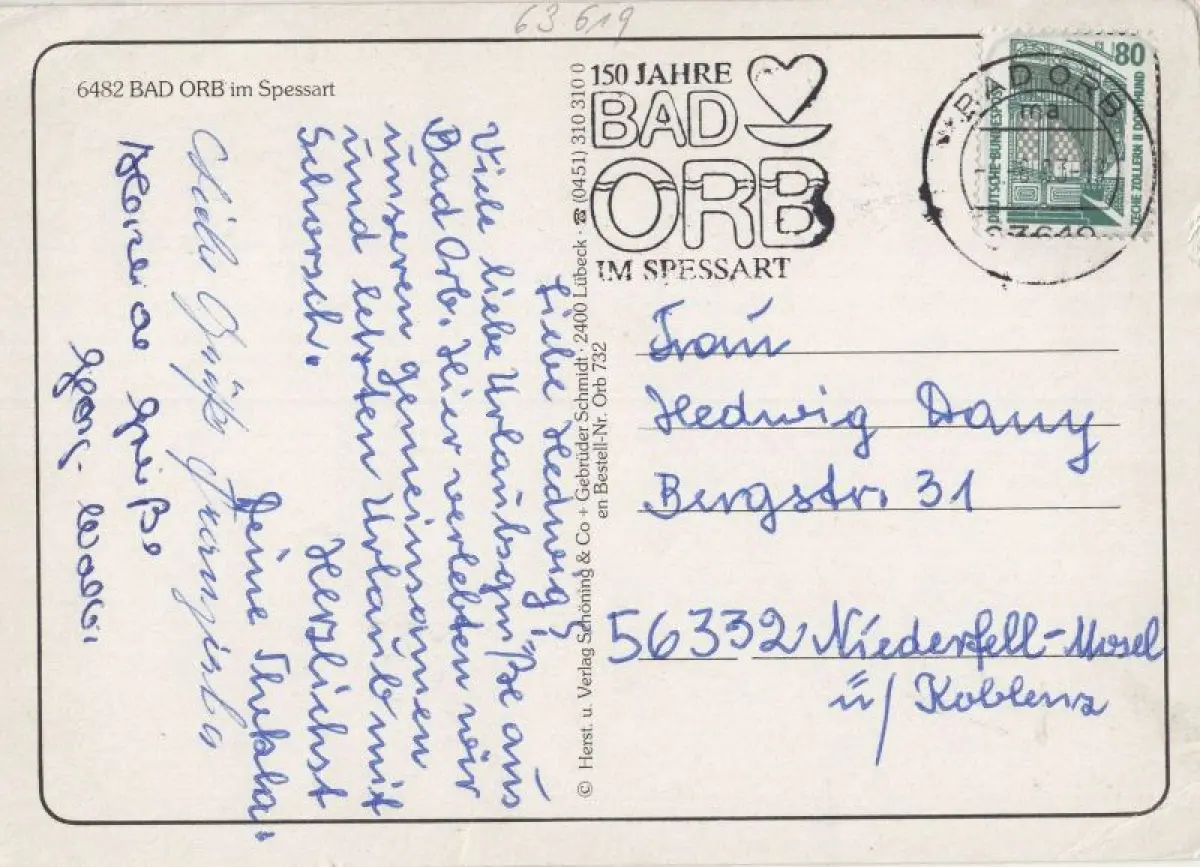 63 619
6482 BAD ORB im Spessart
150 JAHRE
BAD
ORB
IM SPESSART
BAD ORB
ma
63619
80
DEUTSCHE BUNDESPOST
ZECHE ZOLLERN II DORTMUND
Liebe Hedwig!
Viele liebe Urlaubsgrüße aus
Bad Orb. Hier verlebten wir
unseren gemeinsamen
und letzten Urlaub mit
Schorsch.
Herzlichst
Deine Thekla.
Liebe Grüße
Grüße
Georg
© Herst. u. Verlag Schöning & Co + Gebrüder Schmidt · 2400 Lübeck · ☎ (0451) 310 310 0
en Bestell-Nr. Orb 732
Frau
Hedwig Dany
Bergstr. 31
56332 Niederfell-Mosel
ü/ Koblenz